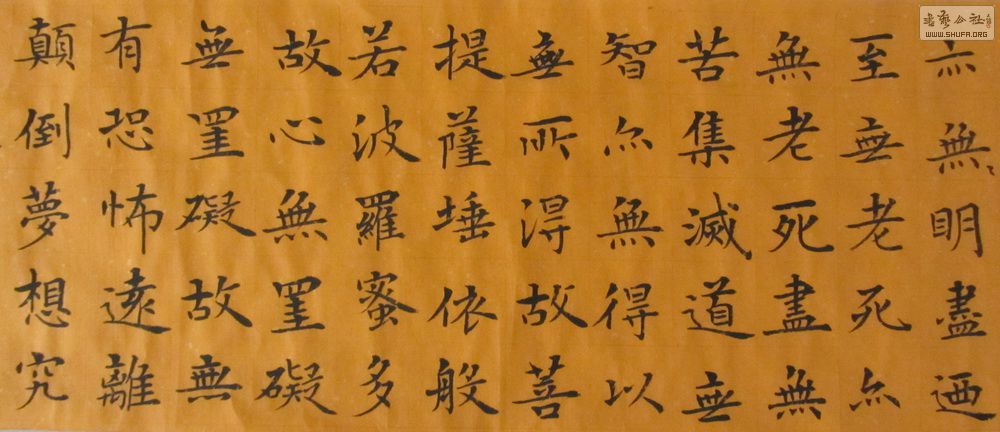 亦無〻明盡迺
至無老死亦
無老死盡無
苦集滅道無
智亦無得以
無所得故菩
提薩埵依般
若波羅蜜多
故心無罣礙
無罣礙故無
有恐怖遠離
顛倒夢想究
WWW.SHUFA.ORG